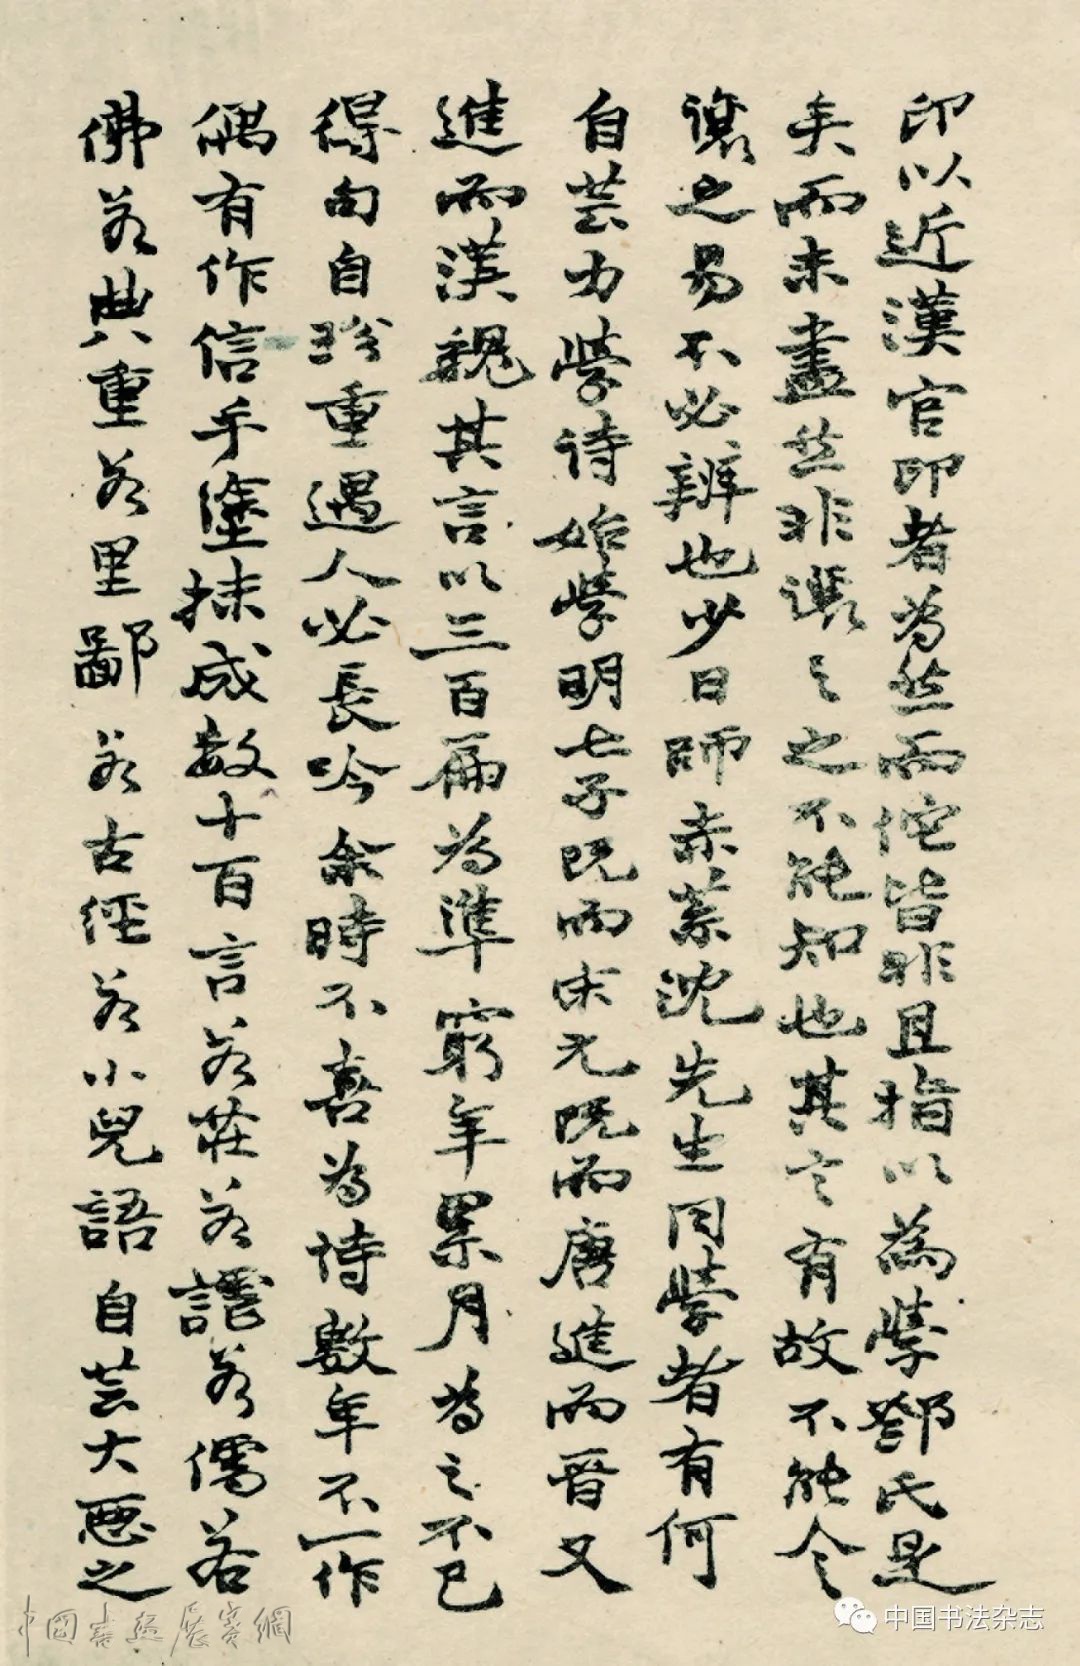 印以近漢官印者為然而佗皆非且指以為學鄧氏是
矣而未盡然非讓之之不能知也其言有故不能令
讓之易不必辨也少日師赤蓁沈先生同學者有何
自芸力學詩始學明七子既而宋元既而唐進而晉又
進而漢魏其言以三百篇為準窮年累月為之不已
得句自珍重遇人必長吟余時不喜為詩數年不一作
偶有作信手塗抹成数十百言若莊若謔若儒若
佛若典重若里鄙若古經若小兒語自芸大惡之
中国书法杂志
中國書法展賽網